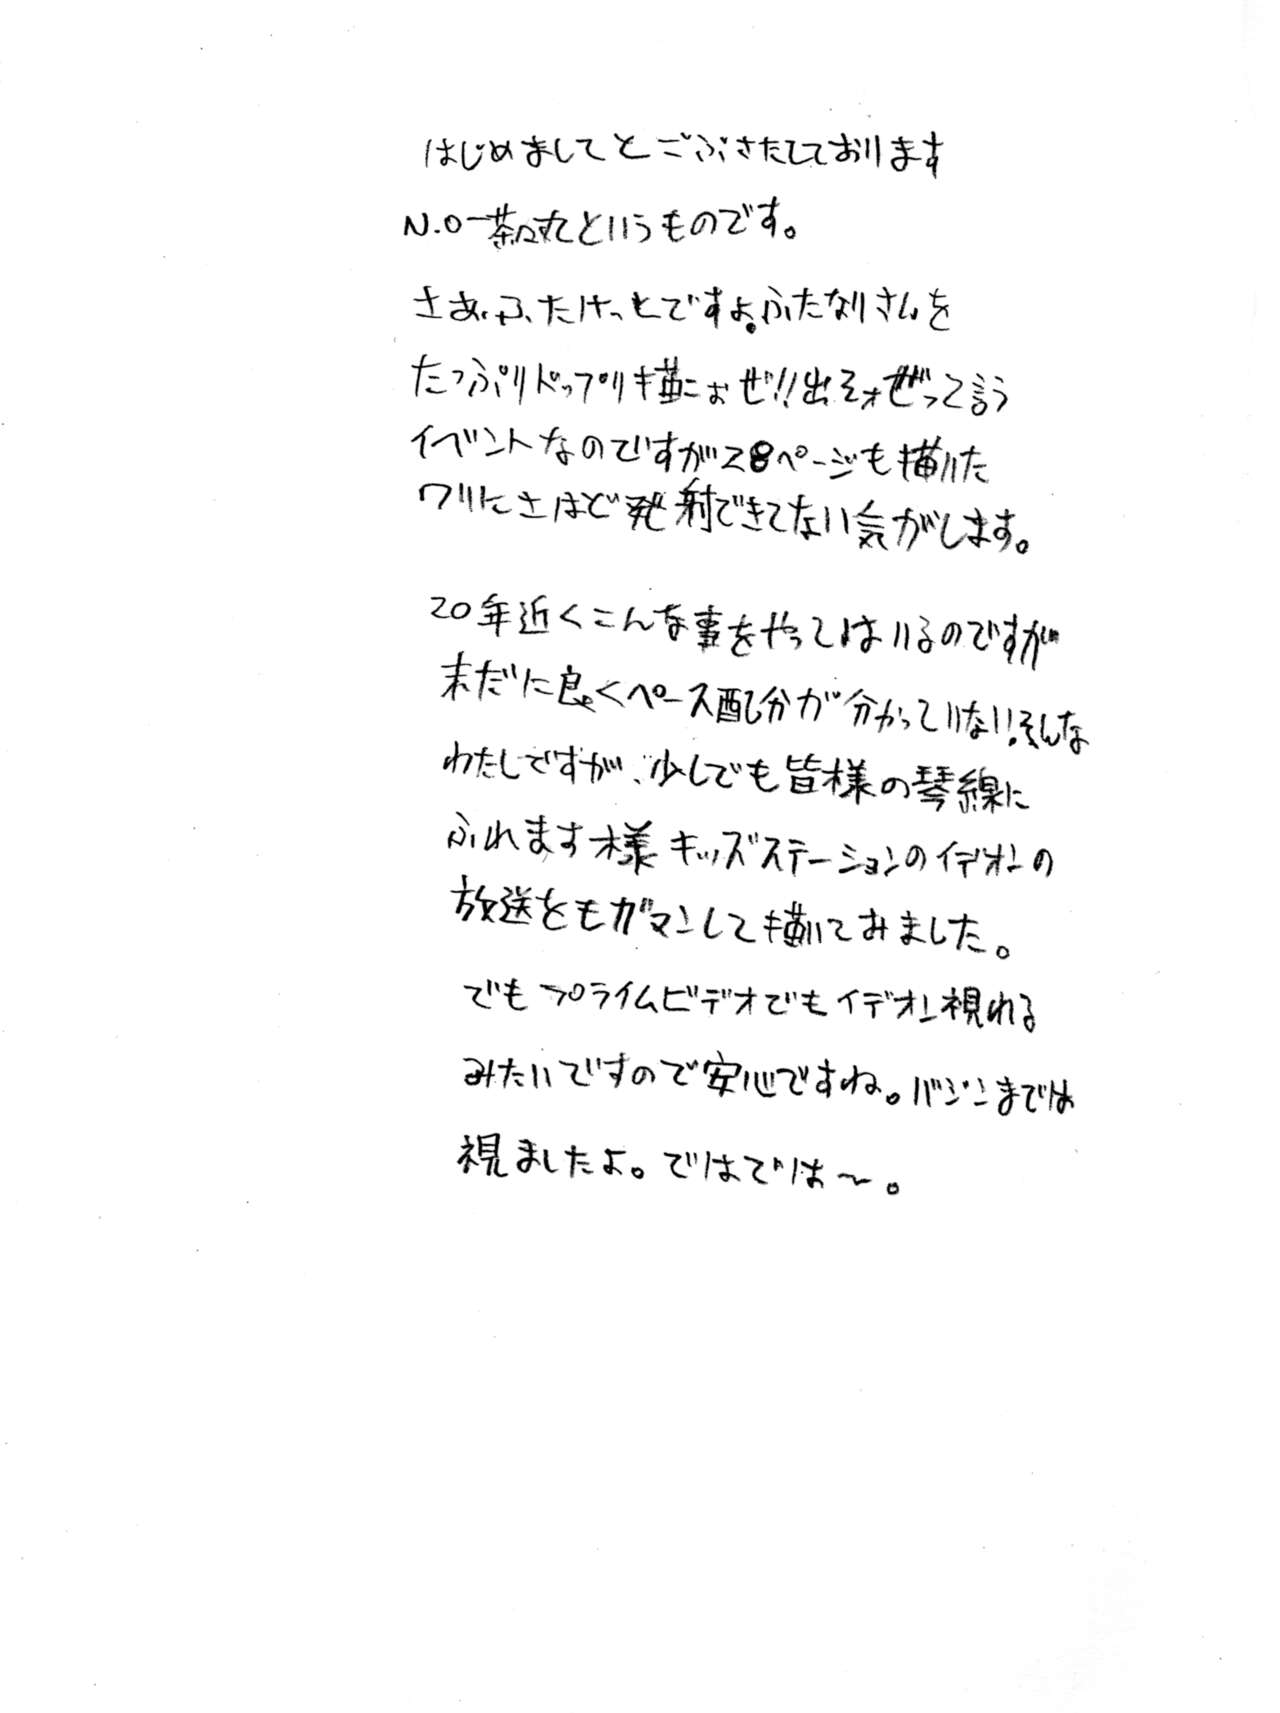 はじめましてとごぶさたしております
N.O-茶々丸というものです。
さあ、ふたけっとですよ。ふたなりさんを
たっぷりドップリ描こぉぜ!!出そォぜって言う
イベントなのですが28ページも描いた
ワリにさほど発射できてない気がします。
20年近くこんな事をやってはいるのですが
未だに良くペース配分が分かっていない!そんな
わたしですが、少しでも皆様の琴線に
ふれます様キッズステーションのイデオンの
放送をもガマンして描いてみました。
でもプライムビデオでもイデオン視れる
みたいですので安心ですね。バジンまでは
視ましたよ。ではでは～。